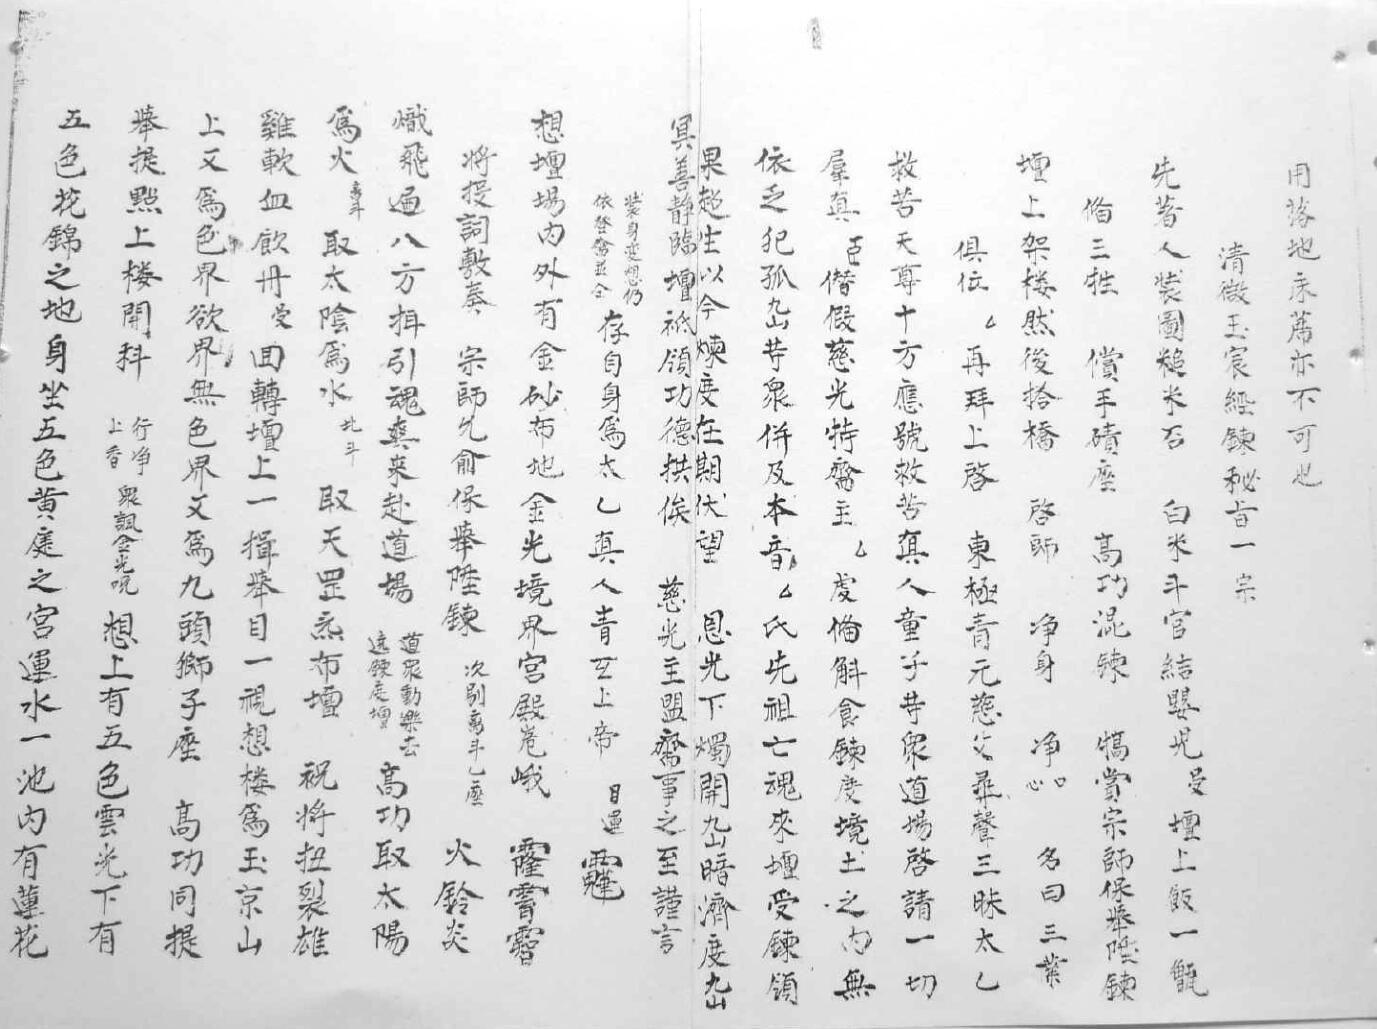 用落地床荐亦不可也
清微玉宸經鍊秘旨一宗
先着人裝圖糙米石 白米斗宮結嬰児受壇上飯一甑
俻三牲 償手磧座 高功混鍊 犒賞宗師保舉陞鍊
壇上架楼然後拾橋 啓師 净身 净心口 名曰三業
俱位厶再拜上啓 東極青元慈父尋聲三昧太乙
救苦天尊十方應號救苦真人童子䓁衆道場啓請一切
羣真臣僭假慈光特齋主厶處俻斛食鍊度境土之内無
依乏祀孤䓁衆併及本音厶氏先祖亡魂來壇受鍊領
果超生以今煉度在期伏望 恩光下燭開暗濟度
冥善静臨壇祗領功德拱俟 慈光主盟齋事之至謹言
裝身变想仍
依登齋並仝
存自身爲太乙真人青玄上帝 目運
想壇場内外有金砂布地金光境界宮殿嵬峨
將投詞敷奏 宗師允俞保舉陞鍊 次剔离斗乙座 火鈴炎
熾飛遍八方揖引魂爽来赴道場 道眾動樂去 遶鍊度壇 高功取太陽
爲火 离斗 取太陰爲水 北斗 取天罡炁布壇 祝將扭裂雄
雞軟血飲丹受囬轉壇上一揖舉目一視想楼爲玉京山
上又爲色界欲界無色界又爲九頭獅子座 高功同提
舉提點上楼開科 行净 上香 衆諷金光咒 想上有五色雲光下有
五色花錦之地身坐五色黄庭之宮運水一池内有蓮花